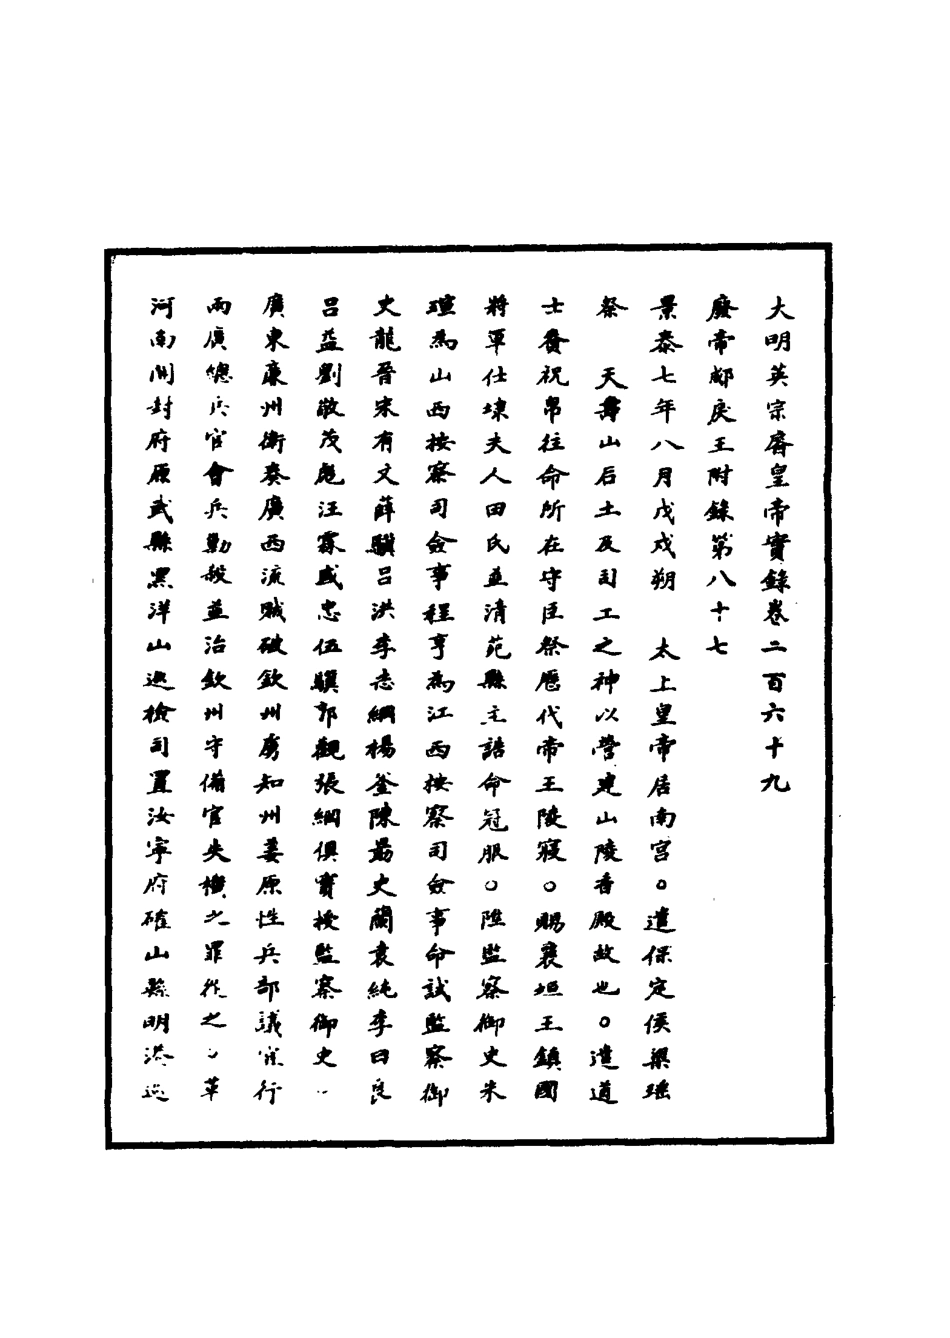 大明英宗睿皇帝實錄卷二百六十九
廢帝郕戾王附錄第八十七
景泰七年八月戊戌朔 太上皇帝居南宮○遣保定侯梁瑶
祭 天壽山后土及司工之神以營建山陵香殿故也○遣道
士賫祝帛往命所在守臣祭歷代帝王陵寢○賜襄垣王鎮國
將軍仕㙻夫人田氏並清苑縣主誥命冠服○陞監察御史朱
瑄為山西按察司僉事程亨為江西按察司僉事命試監察御
史龍晉宋有文薛驥呂洪李志綱楊釜陳勗史蘭袁純李曰良
呂益劉敬茂彪汪霖盛忠伍驥郭觀張綱俱實授監察御史○
廣東廉州衛奏廣西流賊破欽州虜知州姜原性兵部議宜行
兩廣總兵官會兵勦殺並治欽州守備官失機之罪從之○革
河南開封府原武縣黑洋山巡檢司置汝寧府確山縣明港巡